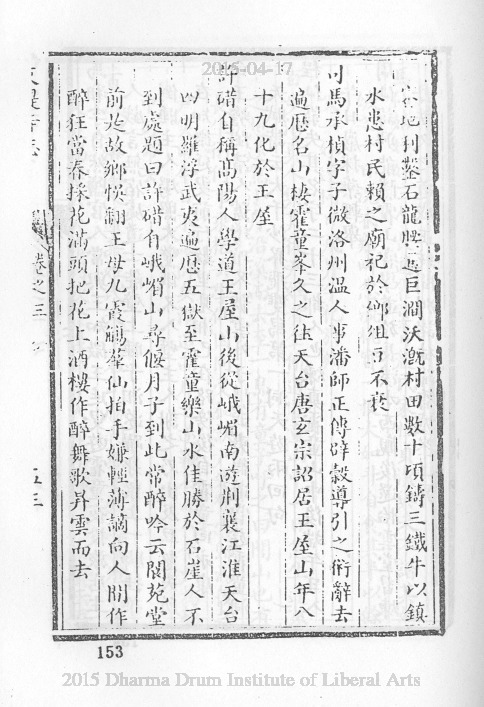 2015-04-17
地利鑿石龍腰逗巨澗沃溉村田數十頃鑄三鐵牛以鎮
水患村民賴之廟祀於鄉俎豆不衰
司馬承楨字子微洛州溫人事潘師正傳辟穀導引之術辭去
遍歷名山棲霍童峯久之往天台唐玄宗詔居王屋山年八
十九化於王屋
許碏自稱高陽人學道王屋山後從峨嵋南遊荆襄江淮天台
四明羅浮武夷遍歷五嶽至霍童樂山水佳勝於石崖人不
到處題曰許碏自峨嵋山尋偃月子到此常醉吟云閬苑堂
前是故鄉悞翻王母九霞觴羣仙拍手嫌輕薄謫向人間作
醉狂當春採花滿頭把花上酒樓作醉舞歌昇雲而去
寺志
卷之三
五三
153
2015 Dharma Drum Institute of Liberal Arts